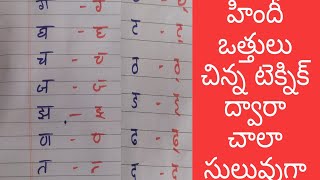 ग - ग्
घ - घ्
च - च्
ज - ज्
झ - झ्
ण - ण्
त - त्
ट - ट्
ठ - ठ्
ड - ड्
ढ - ढ्
द - द्
హిందీ
ఒత్తులు
చిన్న టెక్నిక్
ద్వారా
చాలా
సులువుగా